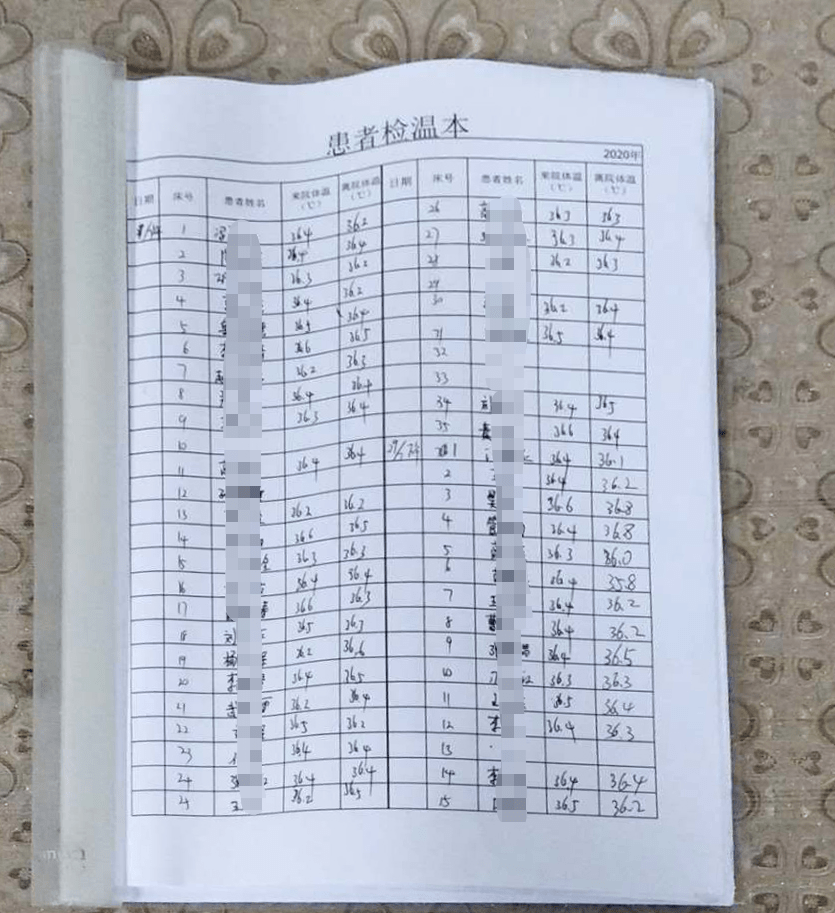 患者检温本
2020年
日期 床号 患者姓名 来院体温(℃) 离院体温(℃) 日期 床号 患者姓名 来院体温(℃) 离院体温(℃)
1 36.4 36.2
2 36.4 36.4
3 36.3 36.2
4 36.4 36.2
5 36.5 36.4
6 36.6 36.5
7 36.2 36.3
8 36.4 36.4
9 36.3 36.4
10
11 36.4 36.4
12
13 36.2 36.2
14 36.6 36.5
15 36.3 36.3
16 36.4 36.4
17 36.6 36.3
18 刘 36.5 36.3
19 杨 36.2 36.6
20 李 36.4 36.5
21 36.2 36.4
22 36.5 36.2
23 36.4 36.4
24 36.4 36.4
25 王 36.2 36.5
26 36.3 36.3
27 36.3 36.4
28 36.2 36.3
29
30 36.2 36.4
31 36.5 36.4
32
33
34 刘 36.4 36.5
35 36.6 36.4
1 36.4 36.1
2 36.4 36.2
3 36.6 36.8
4 36.4 36.8
5 36.3 36.0
6 36.4 35.8
7 王 36.4 36.2
8 36.4 36.2
9 36.4 36.5
10 36.3 36.3
11 36.5 36.4
12 李 36.4 36.3
13
14 李 36.4 36.4
15 36.5 36.2